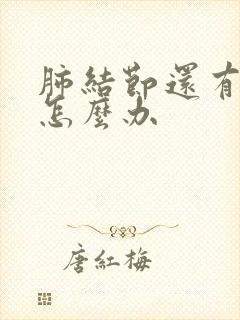 肺結節還有
怎麼办
唐紅梅